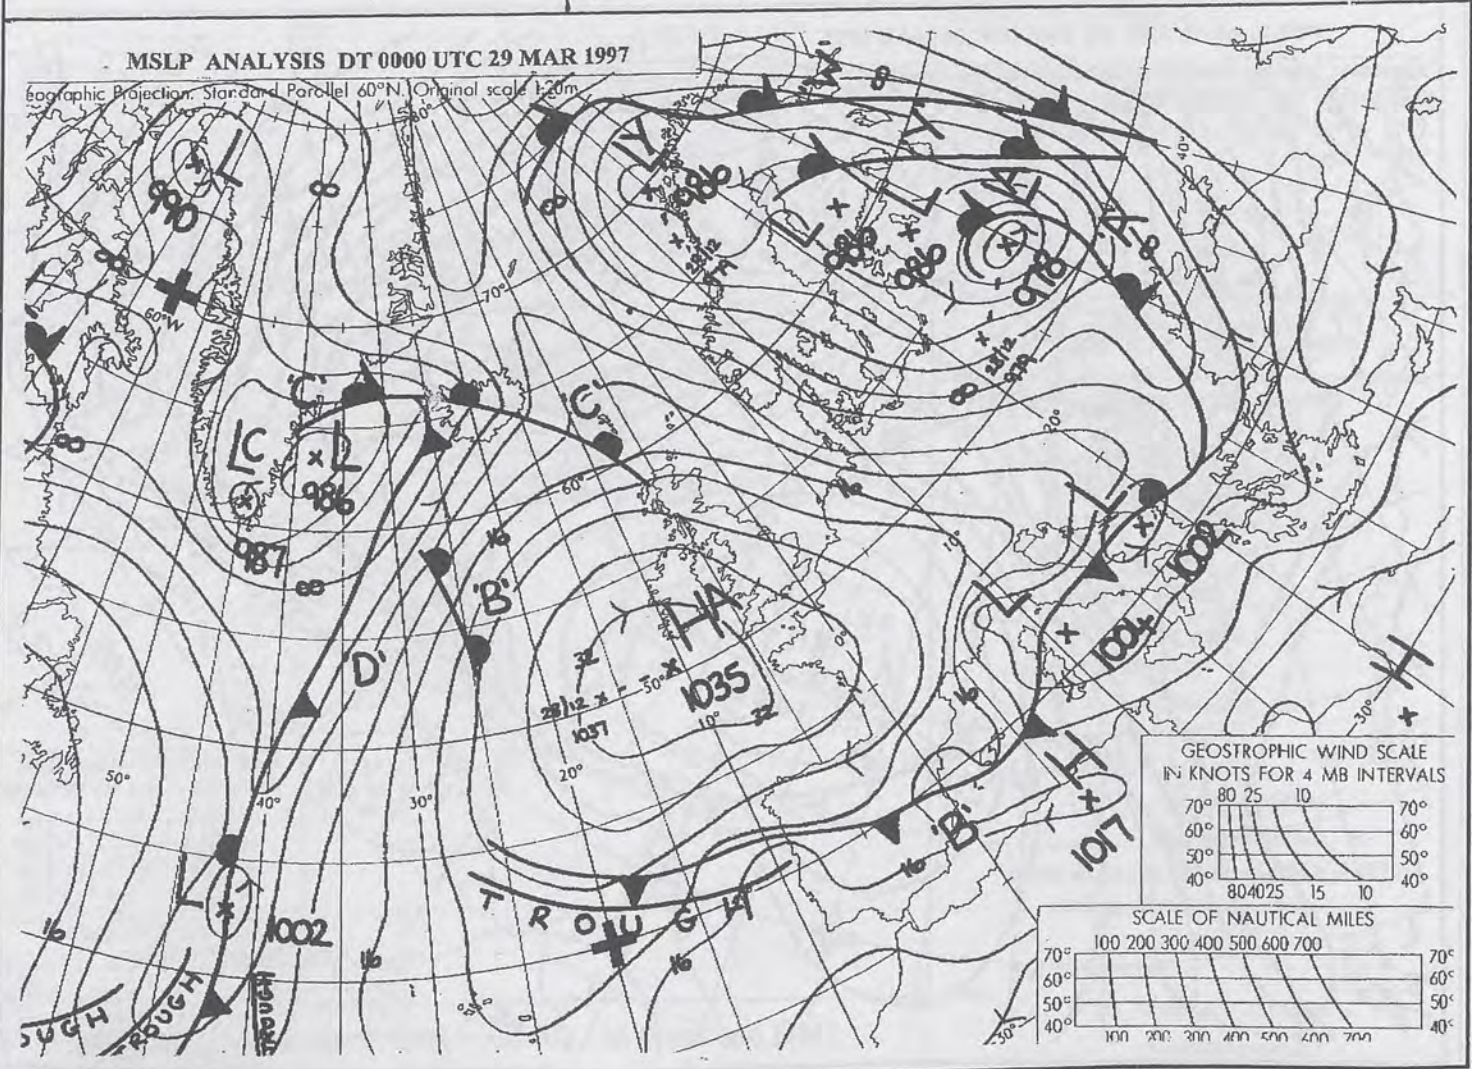 MSLP ANALYSIS DT 0000 UTC 29 MAR 1997
eographic Projection. Standard Parallel 60°N. Original scale 1:20m
80°
L
990
8
8
8
L Y
986
28/12
M
8
Y
40°
L
986
L
986
L A
978
'X'
8
28/12
979
8
60°W
70°
'C'
'C'
L C
L
986
987
8
8
60°
16
16
20°
10°
0°
L Y
1002
L
1004
'B'
'D'
H A
1035
32
32
28/12
1037
50°
10°
20°
30°
40°
50°
16
H
30°
H
1017
'B'
16
L
1002
16
16
16
TROUGH
OUGH
TROUGH
ROUGH
30°
GEOSTROPHIC WIND SCALE
IN KNOTS FOR 4 MB INTERVALS
80 25 10
70° 70°
60° 60°
50° 50°
40° 40°
80 40 25 15 10
SCALE OF NAUTICAL MILES
100 200 300 400 500 600 700
70° 70°
60° 60°
50° 50°
40° 40°
100 200 300 400 500 600 700